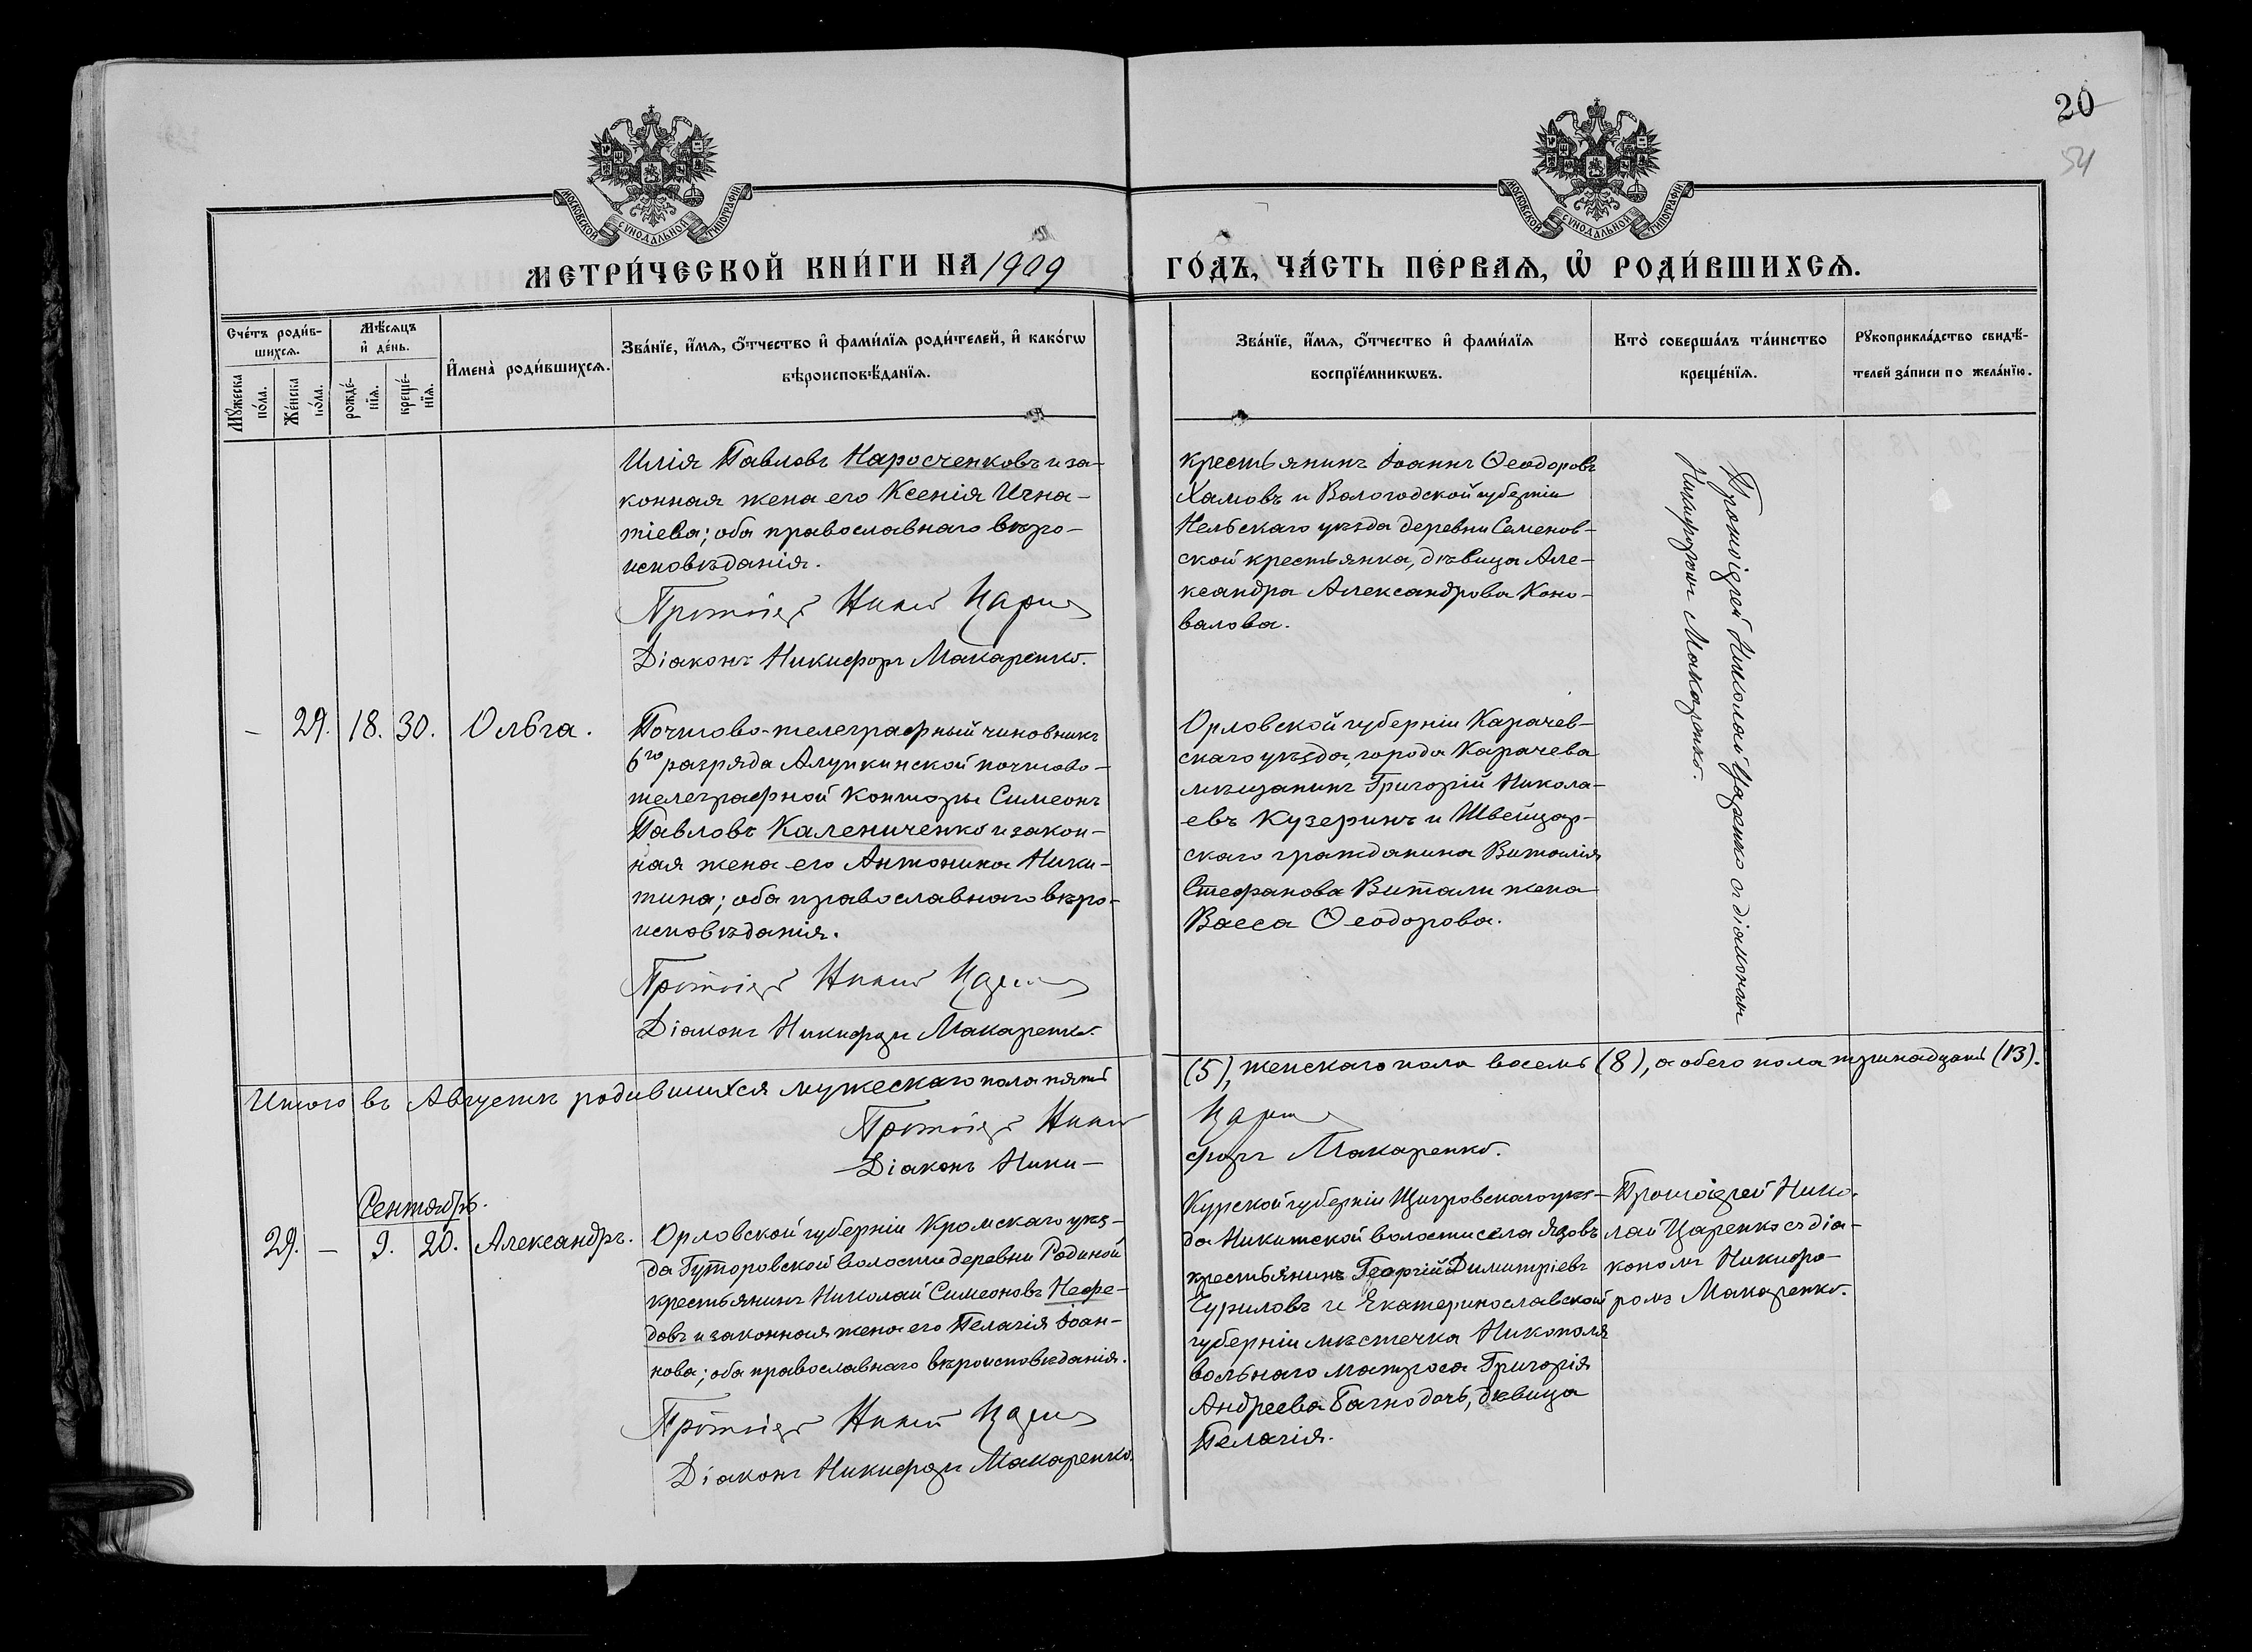 20
54
МОСКОВСКОЙ СѴНОДАЛЬНОЙ ТИПОГРАФІИ
МОСКОВСКОЙ СѴНОДАЛЬНОЙ ТИПОГРАФІИ
МЕТРИ́ЧЕСКОЙ КНИ́ГИ НА 1909
ГО́ДЪ, ЧА́СТЬ ПЕ́РВАѦ, Ѡ҆ РОДИ́ВШИХСѦ.
Сче́тъ роди́в-
шихсѧ.
Мꙋ́жеска
по́ла.
Же́нска
по́ла.
Мѣ́сѧцъ
и҆ де́нь.
рожде́-
нїѧ.
креще́-
нїѧ.
И҆мена̀ роди́вшихсѧ.
Зва́нїе, и҆́мѧ, ѻ҆́тчество и҆ фами́лїѧ роди́телей, и҆ како́гѡ
вѣроисповѣ́данїѧ.
Зва́нїе, и҆́мѧ, ѻ҆́тчество и҆ фами́лїѧ
воспрїе́мникѡвъ.
Кто̀ соверша́лъ та́инство
креще́нїѧ.
Рꙋкоприкла́дство свидѣ́-
телей за́писи по жела́нїю.
Илія Павловъ Наросченковъ и за-
конная жена его Ксенія Игна-
тіева; оба православнаго вѣро-
исповѣданія.
Протоіер Никол Царен
Діаконъ Никифоръ Макаренко.
крестьянинъ Іоаннъ Ѳеодоровъ
Хамовъ и Вологодской губерніи
Нельскаго уѣзда деревни Семенов-
ской крестьянка, дѣвица Але-
ксандра Александрова Коно-
валова.
Протоіерей Николай Царенко съ діакономъ
Никифоромъ Макаренко.
– 29. 18. 30. Ольга.
Почтово-телеграфный чиновникъ
6го разряда Алупкинской почтово-
телеграфной конторы Симеонъ
Павловъ Калениченко и закон-
ная жена его Антонина Ники-
тина; оба православнаго вѣро-
исповѣданія.
Протоіер Никол Царен
Діаконъ Никифоръ Макаренко.
Орловской губерніи Карачев-
скаго уѣзда, города Карачева
мѣщанинъ Григорій Никола-
евъ Кузеринъ и Швейцар-
скаго гражданина Виталія
Стефанова Витали жена
Васса Ѳеодорова.
Итого въ Августѣ родившихся мужескаго пола пять
(5), женскаго пола восемь (8), а обего пола тринадцать (13).
Протоіер Никол
Царен
Діаконъ Ники-
форъ Макаренко.
Сентябрь.
29. – 9. 20. Александръ.
Орловской губерніи Кромскаго уѣз-
да Гуторовской волости деревни Родиной
крестьянинъ Николай Симеоновъ Нефе-
довъ и законная жена его Пелагія Іоан-
нова; оба православнаго вѣроисповѣданія.
Протоіер Никол Царен
Діаконъ Никифоръ Макаренко.
Курской губерніи Щигровскаго уѣз-
да Никитской волости села Язовъ
крестьянинъ Георгій Димитріевъ
Чуриловъ и Екатеринославской
губерніи мѣстечка Никополя
вольнаго матроса Григорія
Андреева Багно дочь, дѣвица
Пелагія.
Протоіерей Нико-
лай Царенко съ діа-
кономъ Никифо-
ромъ Макаренко.